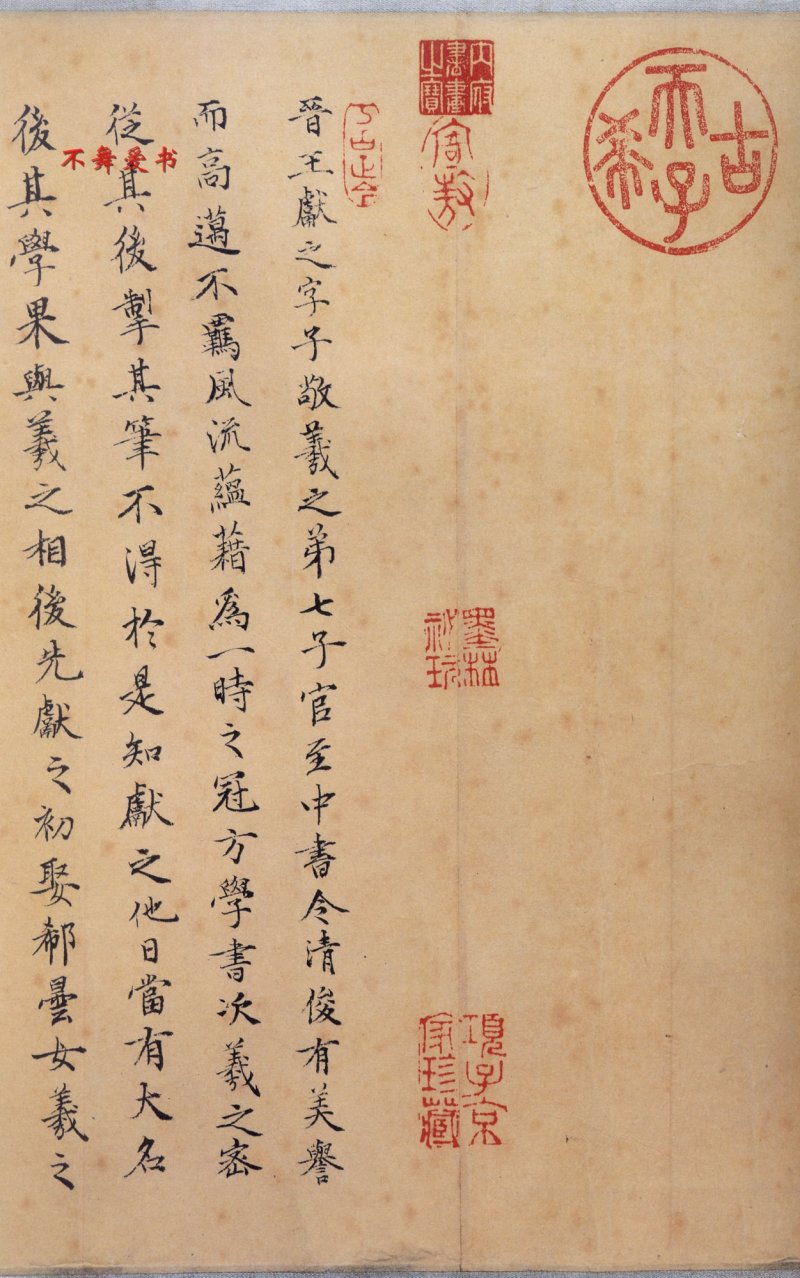 古希天子
內府書畫之寶
墨林祕玩
項子京家珍藏
晉王獻之字子敬羲之弟七子官至中書令清俊有美譽
而高邁不羈風流蘊藉爲一時之冠方學書次羲之密
從其後掣其筆不得於是知獻之他日當有大名
後其學果與羲之相後先獻之初娶郗曇女羲之
不舞爱书